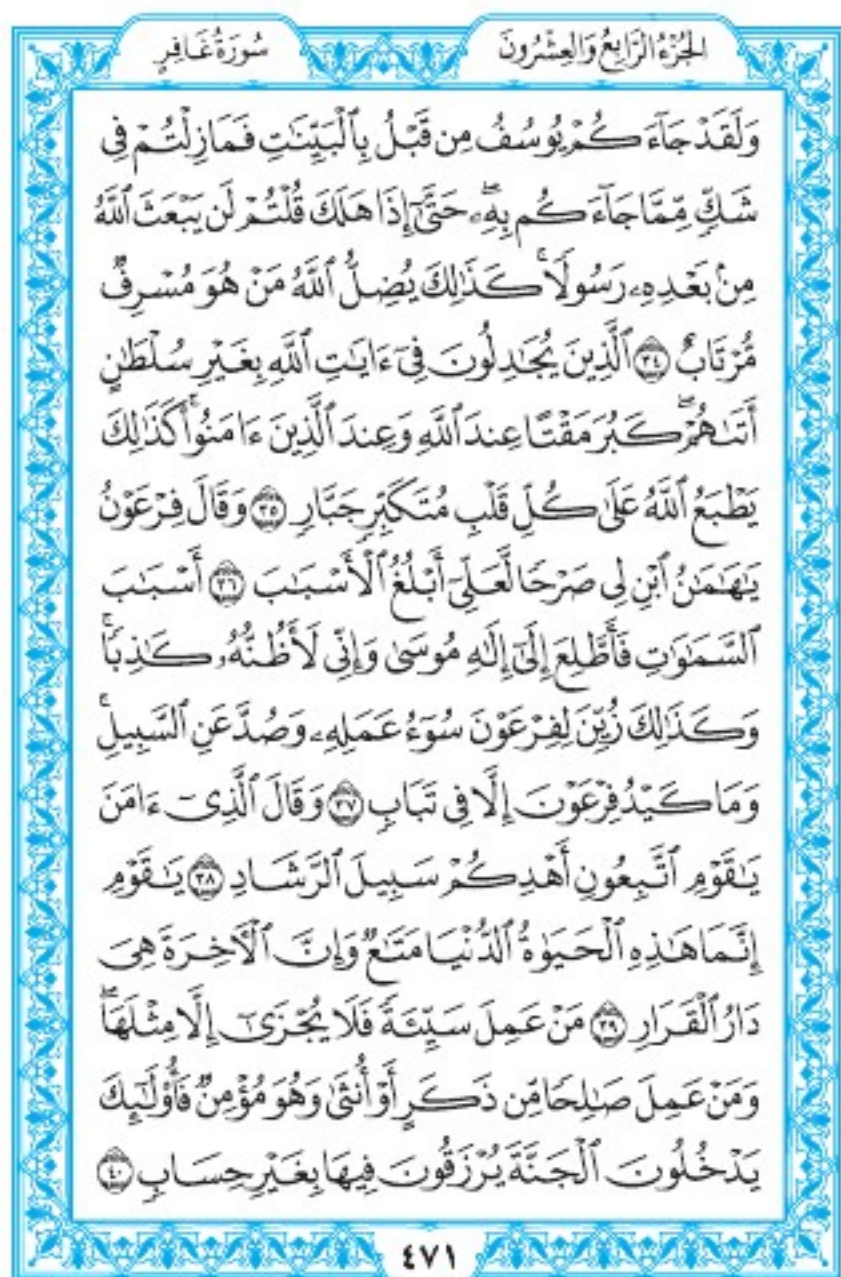 الجُزْءُ الرَّابِعُ وَالعِشْرُونَ
سُورَةُ غَافِرٍ
وَلَقَدْ جَآءَكُمْ يُوسُفُ مِن قَبْلُ بِٱلْبَيِّنَٰتِ فَمَازِلْتُمْ فِى
شَكٍّ مِّمَّا جَآءَكُم بِهِۦۖ حَتَّىٰٓ إِذَا هَلَكَ قُلْتُمْ لَن يَبْعَثَ ٱللَّهُ
مِنۢ بَعْدِهِۦ رَسُولًاۚ كَذَٰلِكَ يُضِلُّ ٱللَّهُ مَنْ هُوَ مُسْرِفٌ
مُّرْتَابٌ ٣٤ ٱلَّذِينَ يُجَٰدِلُونَ فِىٓ ءَايَٰتِ ٱللَّهِ بِغَيْرِ سُلْطَٰنٍ
أَتَىٰهُمْۖ كَبُرَ مَقْتًا عِندَ ٱللَّهِ وَعِندَ ٱلَّذِينَ ءَامَنُوا۟ۚ كَذَٰلِكَ
يَطْبَعُ ٱللَّهُ عَلَىٰ كُلِّ قَلْبِ مُتَكَبِّرٍ جَبَّارٍ ٣٥ وَقَالَ فِرْعَوْنُ
يَٰهَٰمَٰنُ ٱبْنِ لِى صَرْحًا لَّعَلِّىٓ أَبْلُغُ ٱلْأَسْبَٰبَ ٣٦ أَسْبَٰبَ
ٱلسَّمَٰوَٰتِ فَأَطَّلِعَ إِلَىٰٓ إِلَٰهِ مُوسَىٰ وَإِنِّى لَأَظُنُّهُۥ كَٰذِبًاۚ
وَكَذَٰلِكَ زُيِّنَ لِفِرْعَوْنَ سُوٓءُ عَمَلِهِۦ وَصُدَّ عَنِ ٱلسَّبِيلِۚ
وَمَا كَيْدُ فِرْعَوْنَ إِلَّا فِى تَبَابٍ ٣٧ وَقَالَ ٱلَّذِىٓ ءَامَنَ
يَٰقَوْمِ ٱتَّبِعُونِ أَهْدِكُمْ سَبِيلَ ٱلرَّشَادِ ٣٨ يَٰقَوْمِ
إِنَّمَا هَٰذِهِ ٱلْحَيَوٰةُ ٱلدُّنْيَا مَتَٰعٌ وَإِنَّ ٱلْءَاخِرَةَ هِىَ
دَارُ ٱلْقَرَارِ ٣٩ مَنْ عَمِلَ سَيِّئَةً فَلَا يُجْزَىٰٓ إِلَّا مِثْلَهَاۖ
وَمَنْ عَمِلَ صَٰلِحًا مِّن ذَكَرٍ أَوْ أُنثَىٰ وَهُوَ مُؤْمِنٌ فَأُو۟لَٰٓئِكَ
يَدْخُلُونَ ٱلْجَنَّةَ يُرْزَقُونَ فِيهَا بِغَيْرِ حِسَابٍ ٤٠
٤٧١